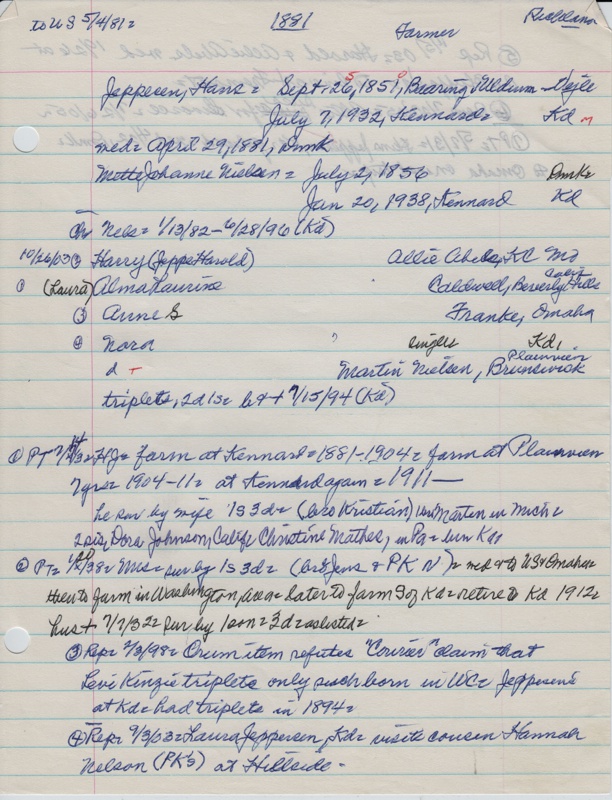 to US 5/4/81= 1881 Farmer
Jeppesen, Hans = Sept. 26, 1851, Bearing, Uldum - Vejle
July 7, 1932, Kennard= Kd
med= April 29, 1881, Dnmk
Mette Johanne Nielsen = July 2, 1856 Dnmk=
Jan 20, 1938, Kennard Kd
Nels= 1/13/82-6/28/96 (Kd)
10/26/03 Harry (Jeppe Harold) Allie Abels, KC Mo
(Laura) Alma Laurine Caldwell, Beverly Hills Calif
③ Anne G Franke, Omaha
④ Nora ? single Kd,
d Martin Nielsen, Brunswick Plainview
triplets, 2d 1s= b & + 7/15/94 (Kd)
① PT= HJ= farm at Kennard=1881-1904= farm at Plainview
7 yrs= 1904-11= at Kennard again= 1911—
he sur by wife 1s 3d= (bro Kristian) Marten in Mich=
2 sis, Dora Johnson, Calif= Christine Mathes, in Pa= bur Kd
② PT= 1/20/38= Mrs= sur by 1s 3d= (bro Jens & PK N)= med & to US= Omaha=
then to farm in Washington, area= later to farm S of Kd= retire to Kd 1912=
hus + 7/7/32= sur by 1 son= 3d= as listed=
③ Rep= 2/3/98= Orum item refutes "Courier" claim that
Levi Kenzie triplets only such born in WC= Jeppesens
at Kd= had triplets in 1894=
④ Rep= 9/3/03= Laura Jeppesen, Kd= visits cousin Hannah
Nelson (PK's) at Hillside -